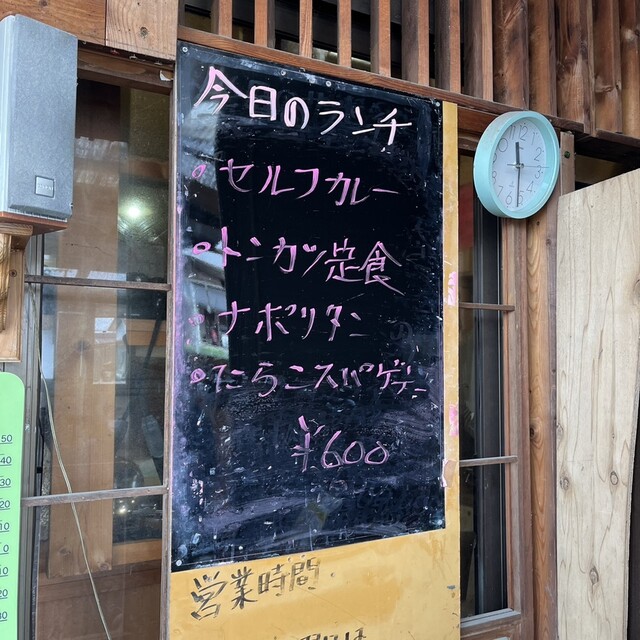 今日のランチ
• セルフカレー
• トンカツ定食
• ナポリタン
• たらこスパゲティー
¥600
営業時間
50
40
30
20
10
0
10
20
30